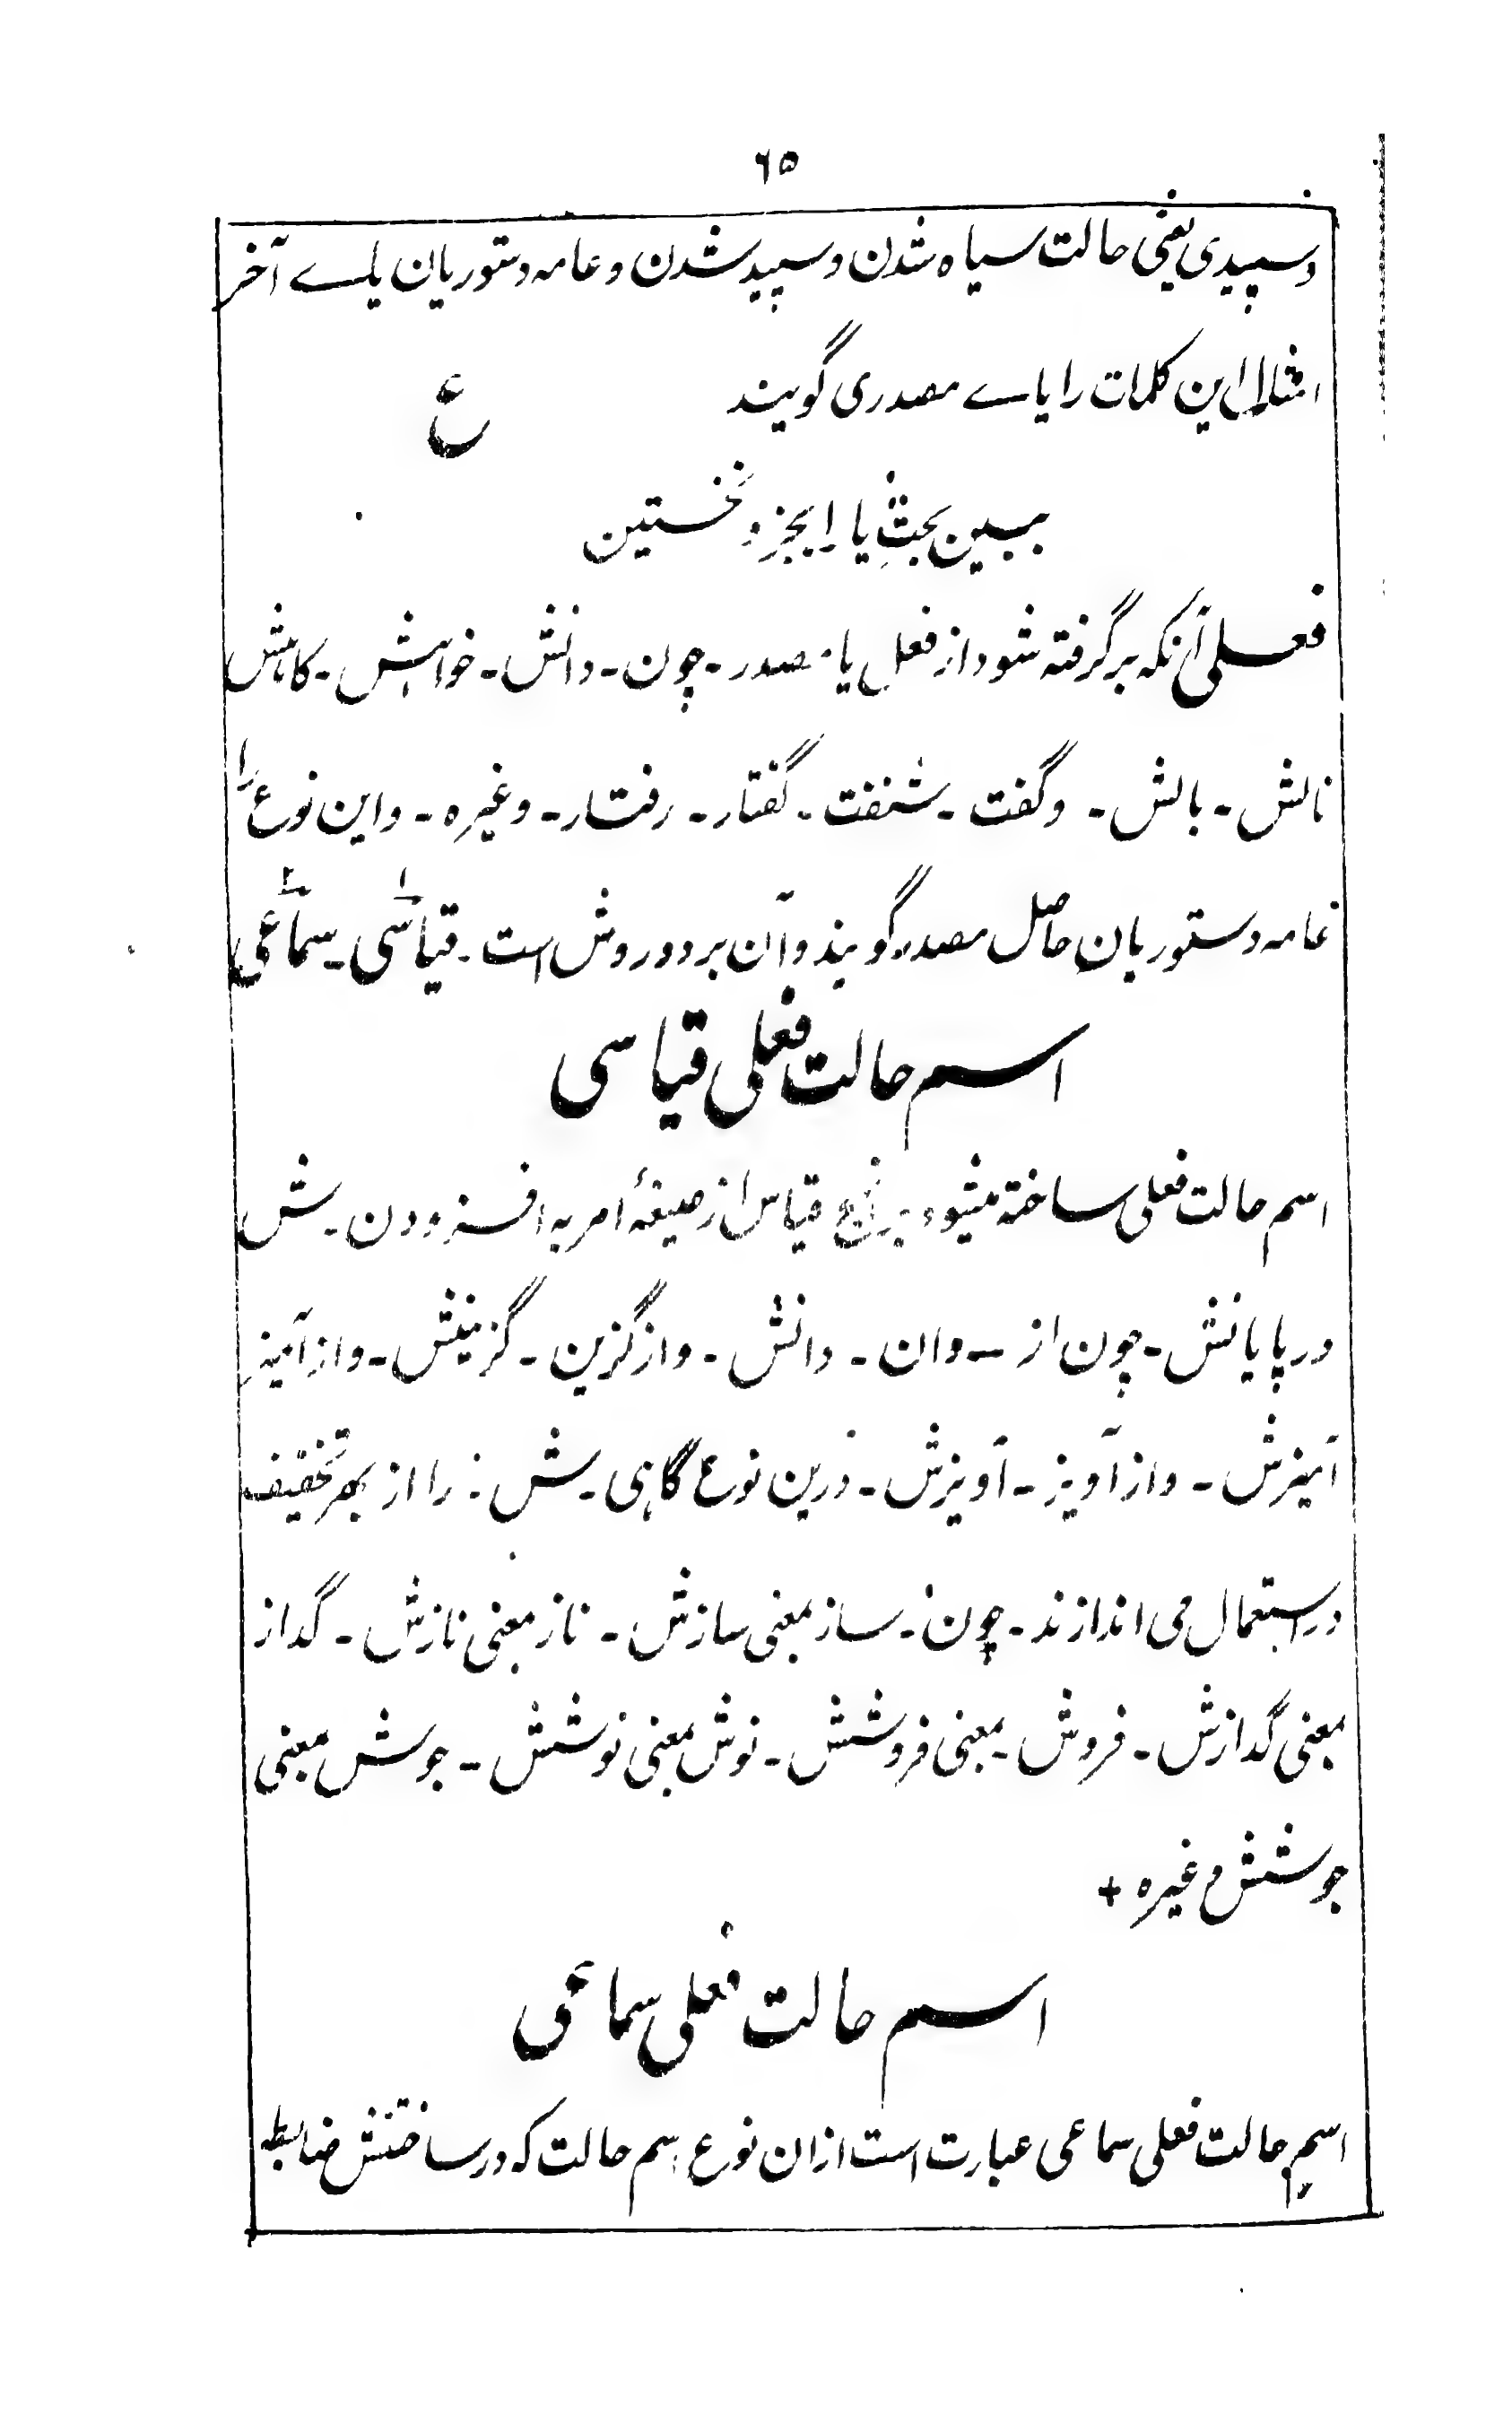 ۶۵
و سپیدی یعنی حالت سیاه شدن و سپید شدن و عامه دستوریان یاے آخر
امثال این کلمات را یاے مصدری گویند
ع
ببین بحث یا ابجز و نخستین
فعلی آنکه برگرفته شود از فعل یا مصدر - چون - دانش - خواهش - کاهش
نالش - بالش - و گفت - شنفت - گفتار - رفتار - وغیره - و این نوع را
عامه دستوریان حاصل مصدر گویند و آن بر دو روش است - قیاسی - سماعی
اسم حالت فعلی قیاسی
اسم حالت فعلی ساخته میشود بر نهج قیاس از صیغهٔ امر به افزودن - ش
در پایانش - چون از - دان - دانش - و از گزین - گزینش - و از آمیز
آمیزش - و از آویز - آویزش - درین نوع گاہی - ش - را از بهر تخفیف
در استعمال می اندازند - چون - ساز بمعنی سازش - ناز بمعنی نازش - گداز
بمعنی گدازش - فروش - بمعنی فروشش - نوش بمعنی نوشش - جوش بمعنی
جوشش وغیره +
اسم حالت فعلی سماعی
اسم حالت فعلی سماعی عبارت است ازان نوع اسم حالت که در ساختنش ضابطه